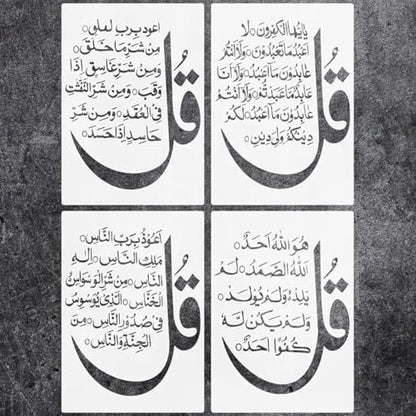 قُل
يايها الكفرون لا
اعبد ما تعبدون ولا انتم
عابدون ما اعبد ولا انا
عابد ما عبدتم ولا انتم
عابدون ما اعبد لكم
دينكم ولي دين
قُل
اعوذ برب الفلق
من شر ما خلق
ومن شر غاسق اذا
وقب ومن شر النفثت
في العقد ومن شر
حاسد اذا حسد
قُل
هو الله احد
الله الصمد لم
يلد ولم يولد
ولم يكن له
كفوا احد
قُل
اعوذ برب الناس
ملك الناس اله
الناس من شر الوسواس
الخناس الذي يوسوس
في صدور الناس من
الجنة والناس